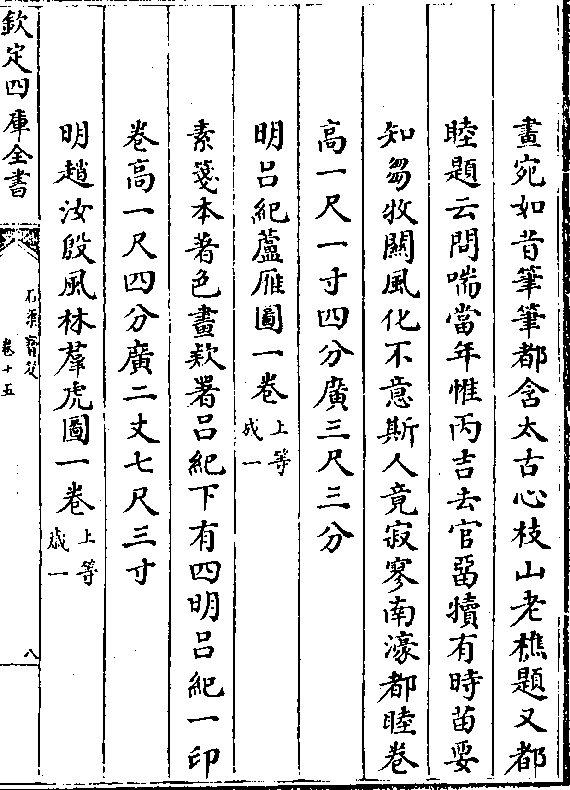 畫宛如昔筆筆都含太古心枝山老樵題又都
睦題云問喘當年惟丙吉去官畱犢有時苗要
知芻牧關風化不意斯人竟寂寥南濠都睦卷
高一尺一寸四分廣三尺三分
明吕紀蘆雁圖一卷上等成一
素箋本著色畫欵署吕紀下有四明吕紀一印
卷高一尺四分廣二丈七尺三寸
明趙汝殷風林羣虎圖一卷上等歲一
欽定四庫全書
石渠寶笈
卷十五
八